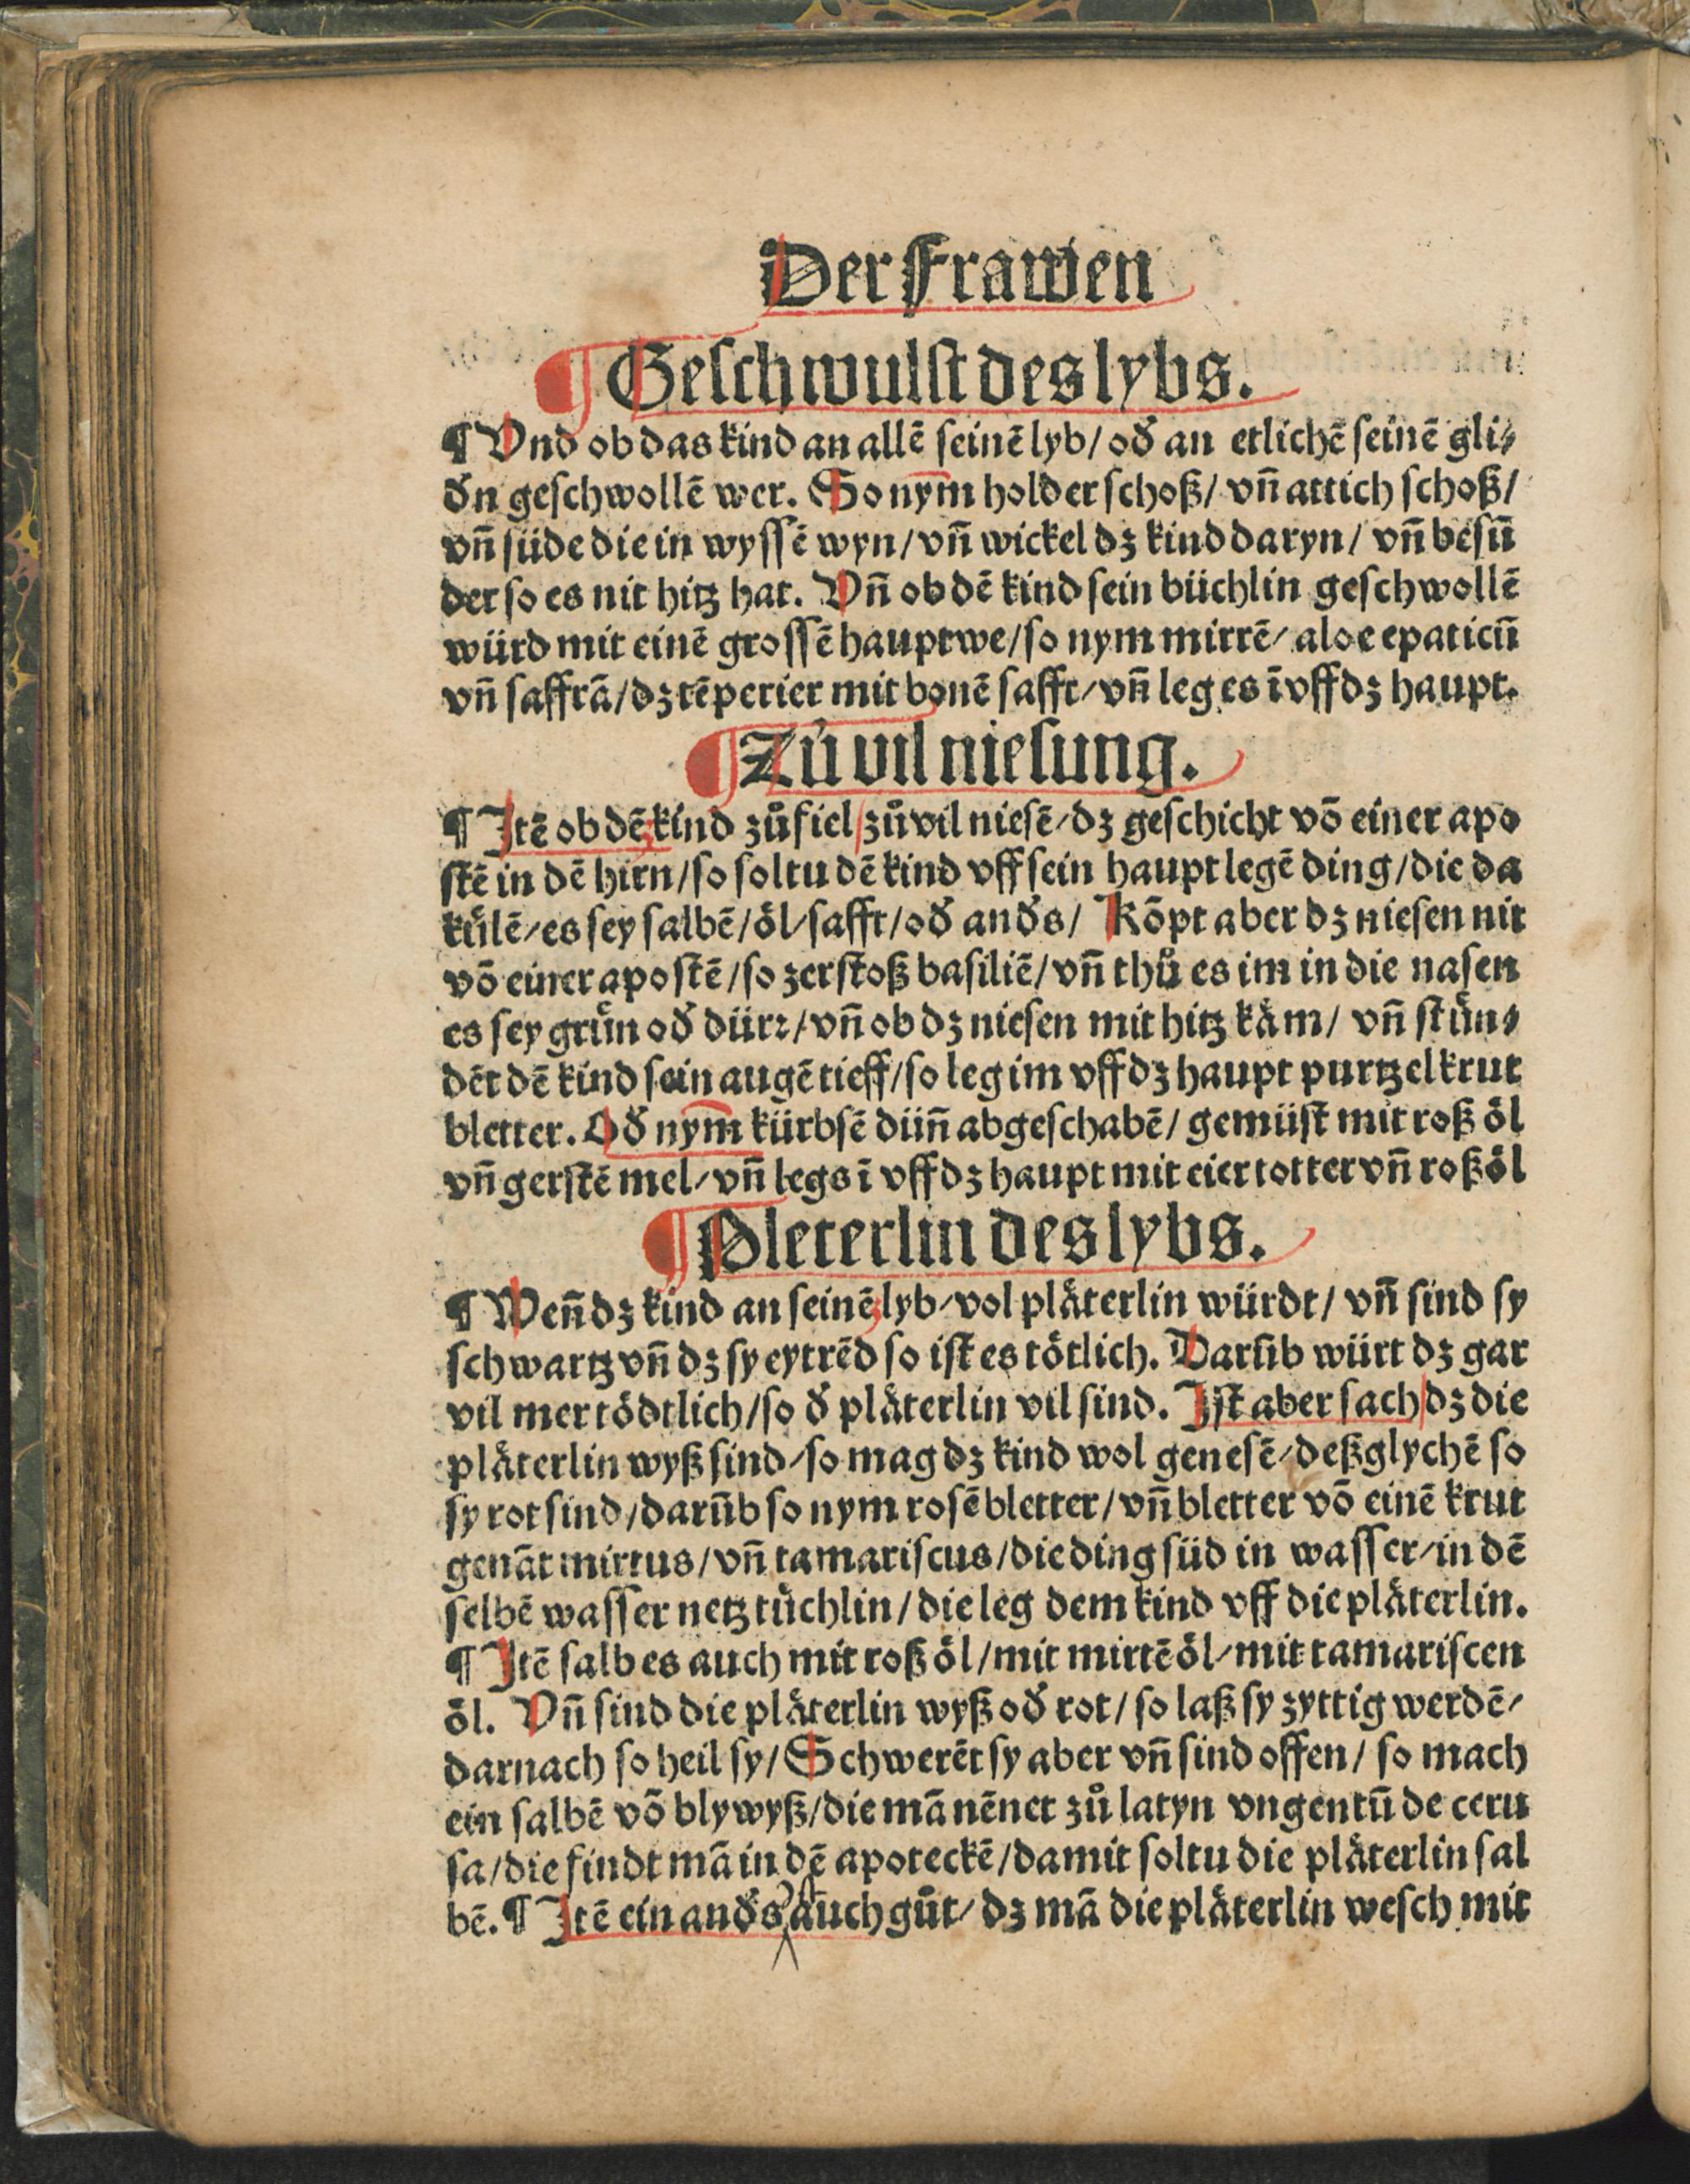 Der Frawen
¶ Geſchwulſt des lybs.
¶ Vnd ob das kind an allē ſeinē lyb/ oð an etlichē ſeinē gli⸗
ðn geſchwollē wer. So nym̄ holder ſchoß/ vn̄ attich ſchoß/
vn̄ ſüde die in wyſſē wyn/ vn̄ wickel dꝫ kind daryn/ vn̄ beſū
der ſo es nit hitz hat. Vn̄ ob dē kind ſein büchlin geſchwollē
würd mit einē groſſē hauptwe/ ſo nym mirrē/ aloe epaticū
vn̄ ſaffrā/ dꝫ tēperier mit bonē ſafft/ vn̄ leg es ī vff dꝫ haupt.
¶ Zů vil nieſung.
¶ Itē ob dē kind zůfiel zů vil nieſē/ dꝫ geſchicht vō einer apo
ſtē in dē hirn/ ſo ſoltu dē kind vff ſein haupt legē ding/ die da
kůlē/ es ſey ſalbē/ öl/ ſafft/ oð anðs/ Kōpt aber dꝫ nieſen nit
vō einer apoſtē/ ſo zerſtoß baſiliē/ vn̄ thů es im in die naſen
es ſey grün oð dürꝛ/ vn̄ ob dꝫ nieſen mit hitz käm/ vn̄ ſtün⸗
dēt dē kind ſein augē tieff/ ſo leg im vff dꝫ haupt purtzelkrut
bletter. Oð nym̄ kürbſē dün̄ abgeſchabē/ gemüſt mit roß öl
vn̄ gerſtē mel/ vn̄ legs ī vff dꝫ haupt mit eier totter vn̄ roß öl
¶ Pleterlin des lybs.
¶ Wen̄ dꝫ kind an ſeinē lyb/ vol pläterlin würdt/ vn̄ ſind ſy
ſchwartz vn̄ dꝫ ſy eytrēd ſo iſt es tötlich. Darūb würt dꝫ gar
vil mer tödtlich/ ſo ð pläterlin vil ſind. Iſt aber ſach dꝫ die
pläterlin wyß ſind/ ſo mag dꝫ kind wol geneſē/ deßglychē ſo
ſy rot ſind/ darūb ſo nym roſē bletter/ vn̄ bletter vō einē krut
genāt mirtus/ vn̄ tamariſcus/ die ding ſüd in waſſer/ in dē
ſelbē waſſer netz tüchlin/ die leg dem kind vff die pläterlin.
¶ Itē ſalb es auch mit roß öl/ mit mirtē öl/ mit tamariſcen
öl. Vn̄ ſind die pläterlin wyß oð rot/ ſo laß ſy zyttig werdē/
darnach ſo heil ſy/ Schwerēt ſy aber vn̄ ſind offen/ ſo mach
ein ſalbē vō blywyß/ die mā nēnet zů latyn vngentū de ceru
ſa/ die findt mā in dē apoteckē/ damit ſoltu die pläterlin ſal
bē. ¶ Itē ein anðs auch gůt/ dꝫ mā die pläterlin weſch mit